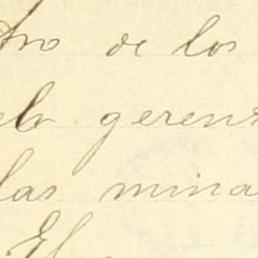 tro de los
elo gerent
las mina
El